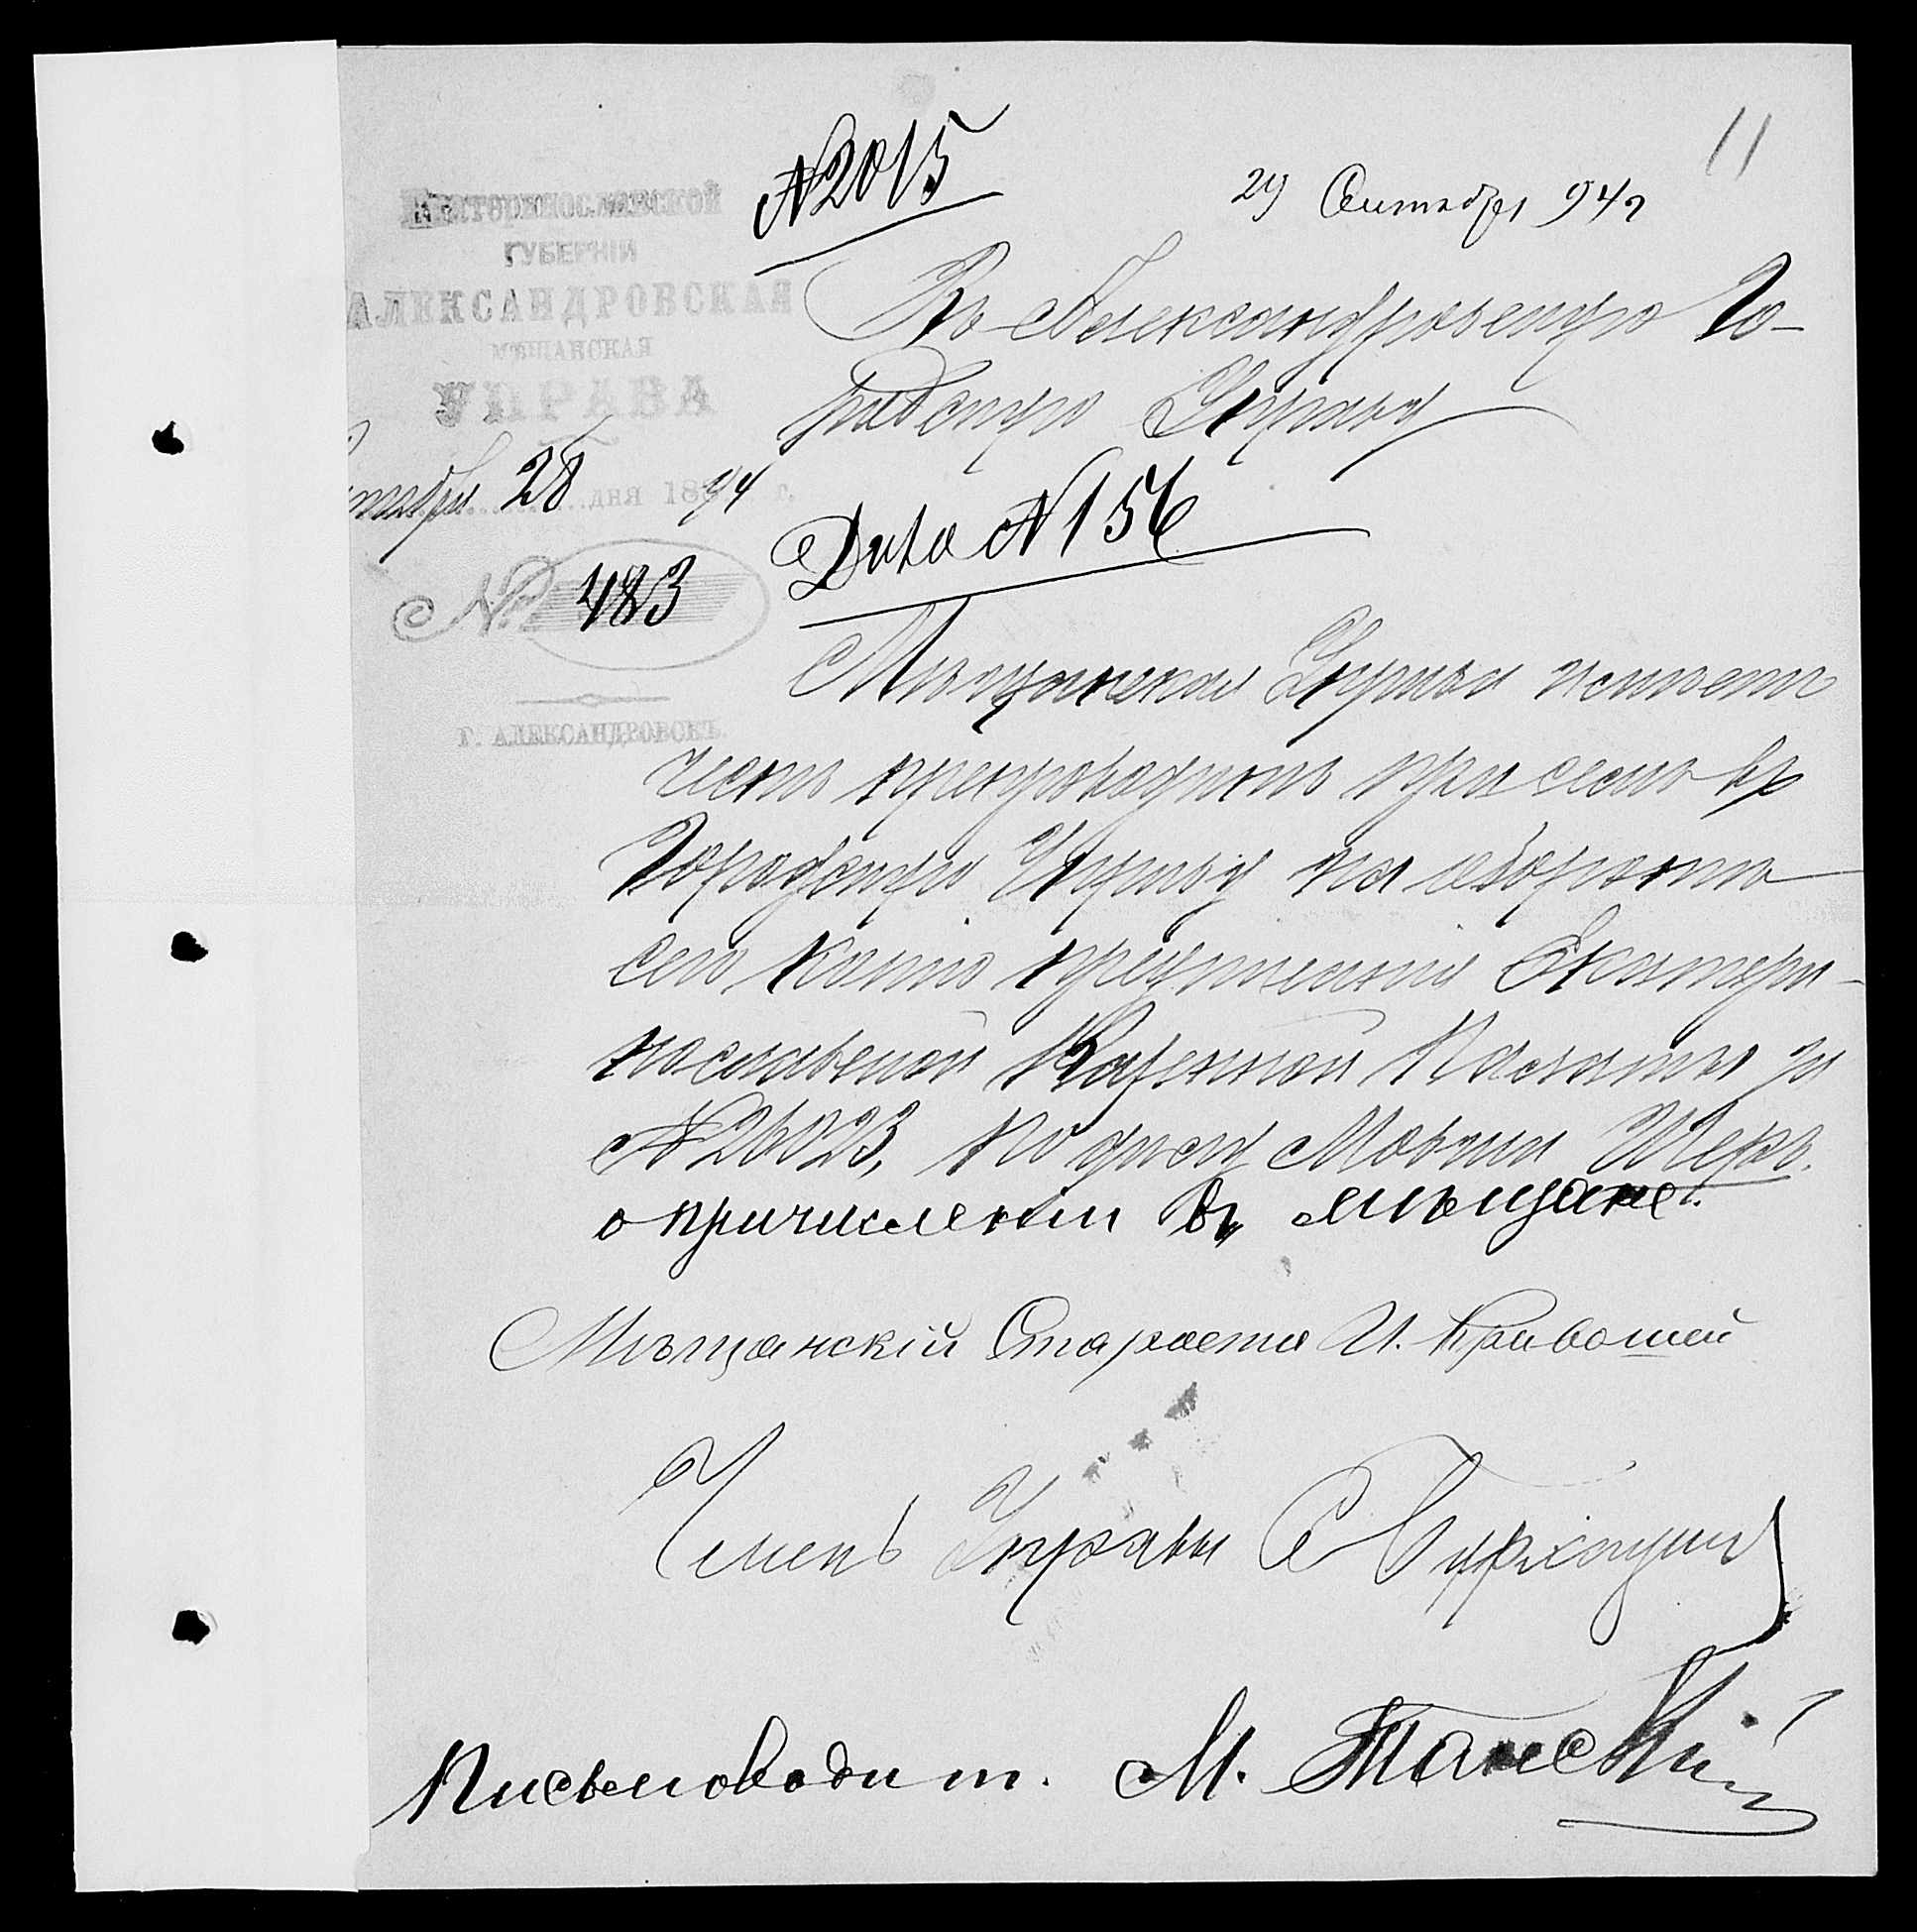 11
№ 2015
29 Сентября 94 г
Екатеринославской
ГУБЕРНІИ
АЛЕКСАНДРОВСКАЯ
МѢЩАНСКАЯ
УПРАВА
28 дня 1894 г.
№ 483
Г. АЛЕКСАНДРОВСКЪ.
Въ Александровскую Го-
родскую Управу
Дѣло № 156
Мѣщанская Управа имѣетъ
честь препроводить при семъ въ
Городскую Управу на оборотѣ
сего копію предписанія Екатери-
нославской Казенной Палаты за
№ 26023, по дѣлу Мовши Шеръ.
о причисленіи въ мѣщане.
Мѣщанскій Староста И. Кривошей
Членъ Управы
Письмоводит. М.